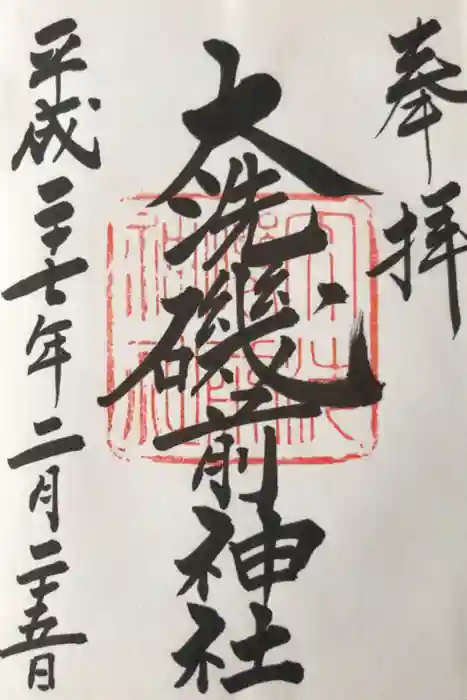 奉拝
大洗磯前神社
平成二十七年二月二十五日